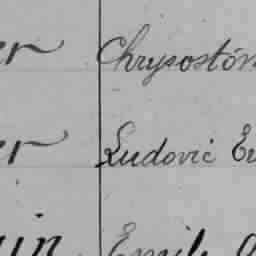 er Chrysostôm
er Ludovic Eu
in Emile